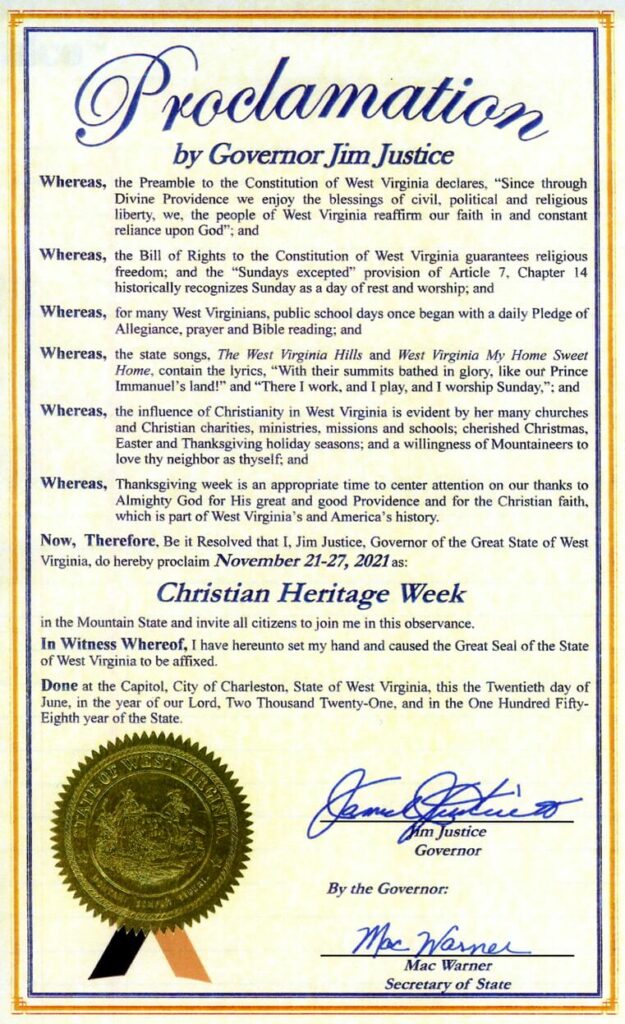 Proclamation
by Governor Jim Justice
Whereas, the Preamble to the Constitution of West Virginia declares, "Since through
Divine Providence we enjoy the blessings of civil, political and religious
liberty, we, the people of West Virginia reaffirm our faith in and constant
reliance upon God"; and
Whereas, the Bill of Rights to the Constitution of West Virginia guarantees religious
freedom; and the "Sundays excepted" provision of Article 7, Chapter 14
historically recognizes Sunday as a day of rest and worship; and
Whereas, for many West Virginians, public school days once began with a daily Pledge of
Allegiance, prayer and Bible reading; and
Whereas, the state songs, The West Virginia Hills and West Virginia My Home Sweet
Home, contain the lyrics, "With their summits bathed in glory, like our Prince
Immanuel's land!" and "There I work, and I play, and I worship Sunday,"; and
Whereas, the influence of Christianity in West Virginia is evident by her many churches
and Christian charities, ministries, missions and schools; cherished Christmas,
Easter and Thanksgiving holiday seasons; and a willingness of Mountaineers to
love thy neighbor as thyself; and
Whereas, Thanksgiving week is an appropriate time to center attention on our thanks to
Almighty God for His great and good Providence and for the Christian faith,
which is part of West Virginia's and America's history.
Now, Therefore, Be it Resolved that I, Jim Justice, Governor of the Great State of West
Virginia, do hereby proclaim November 21-27, 2021 as:
Christian Heritage Week
in the Mountain State and invite all citizens to join me in this observance.
In Witness Whereof, I have hereunto set my hand and caused the Great Seal of the State
of West Virginia to be affixed.
Done at the Capitol, City of Charleston, State of West Virginia, this the Twentieth day of
June, in the year of our Lord, Two Thousand Twenty-One, and in the One Hundred Fifty-
Eighth year of the State.
STATE OF WEST VIRGINIA
Jim Justice
Governor
By the Governor:
Mac Warner
Mac Warner
Secretary of State